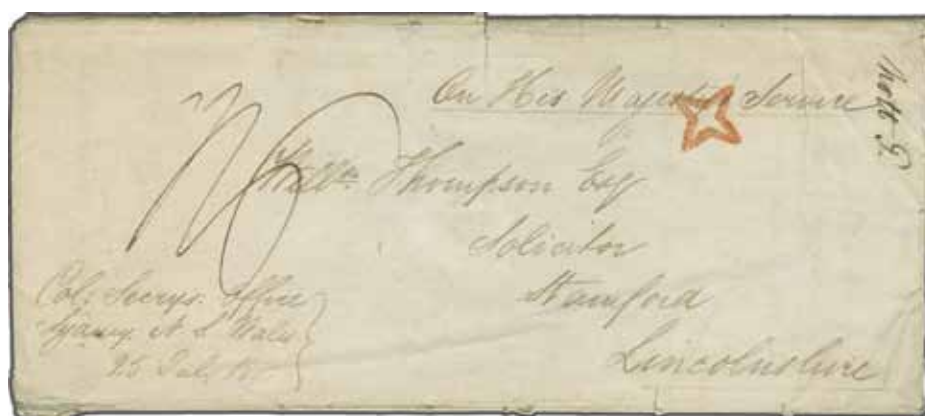 On His Majesty's Service
Willm Thompson Esq
Solicitor
Stamford
Lincolnshire
Col: Secrys. Office
Sydney N S Wales
25 Jul